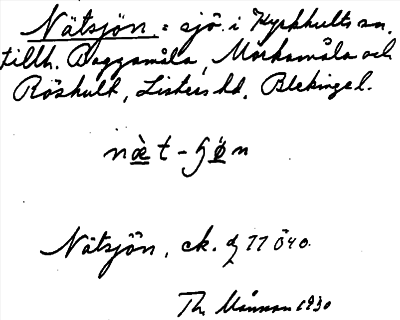 Nätsjön = sjö i Kyrkhults sn.
tillh. Baggamåla, Morkamåla och
Röshult, Listers hd, Blekinge l.
næt-ʃøn
Nätsjön, ek. 77 Ö 40.
Th. Månsson 1930